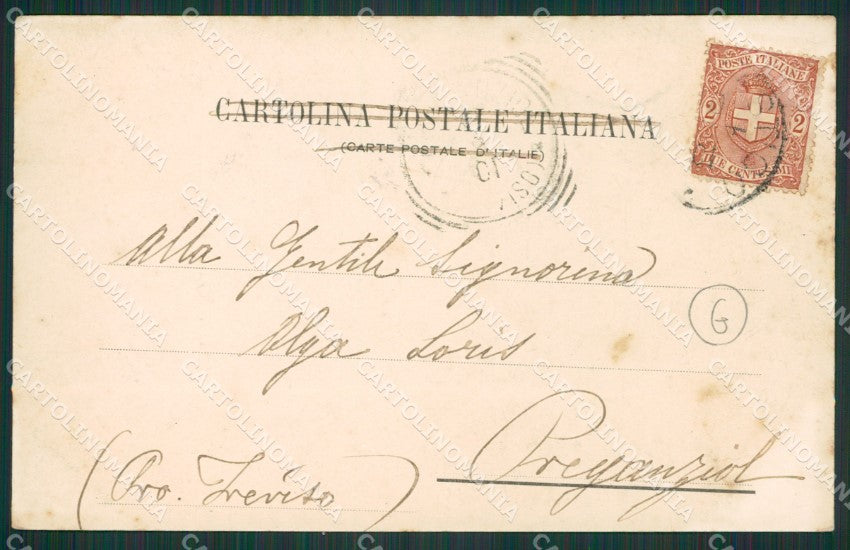 CARTOLINA POSTALE ITALIANA
(CARTE POSTALE D'ITALIE)
POSTE ITALIANE
2 2
DUE CENTESIMI
Alla Gentile Signorina
Olga Loris
G
Preganziol
(Pro. Treviso)
CARTOLINOMANIA